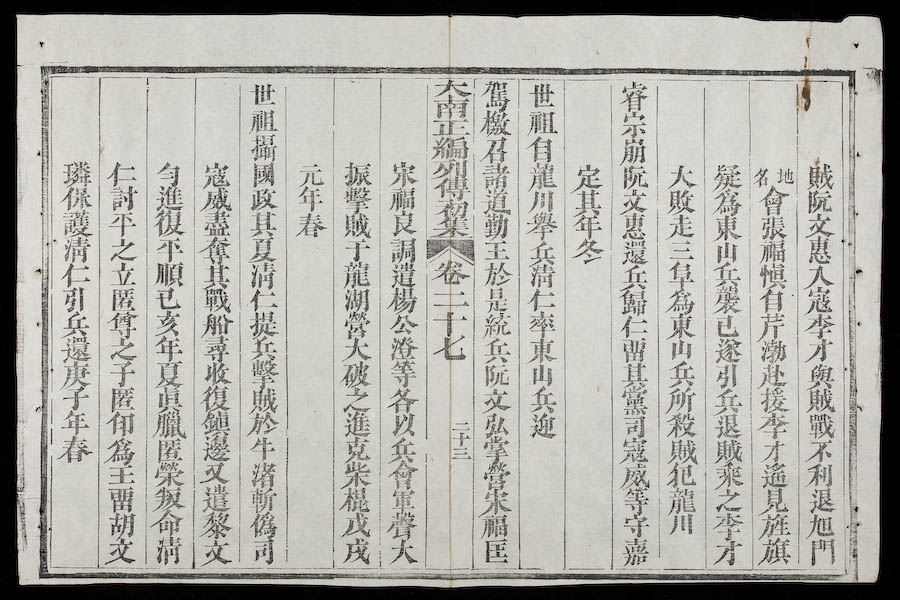 賊阮文惠入寇李才與賊戰不利退旭門
地名會張福慎自芹渤赴援李才遙見旌旗
疑為東山兵襲己遂引兵退賊乘之李才
大敗走三阜為東山兵所殺賊犯龍川
睿宗崩阮文惠還兵歸仁畱其黨司寇威等守嘉
定其年冬
世祖自龍川舉兵清仁率東山兵迎
駕檄召諸道勤王於是統兵阮文弘掌營宋福匡
大南正編列傳初集 卷二十七 二十三
宋福良調遣楊公澄等各以兵會軍聲大
振擊賊于龍湖營大破之進克柴棍戊戌
元年春
世祖攝國政其夏清仁提兵擊賊於牛渚斬偽司
寇威盡奪其戰船尋收復鎮邊又遣黎文
勻進復平順己亥年夏真臘匿榮叛命清
仁討平之立匿尊之子匿印為王畱胡文
璘保護清仁引兵還庚子年春